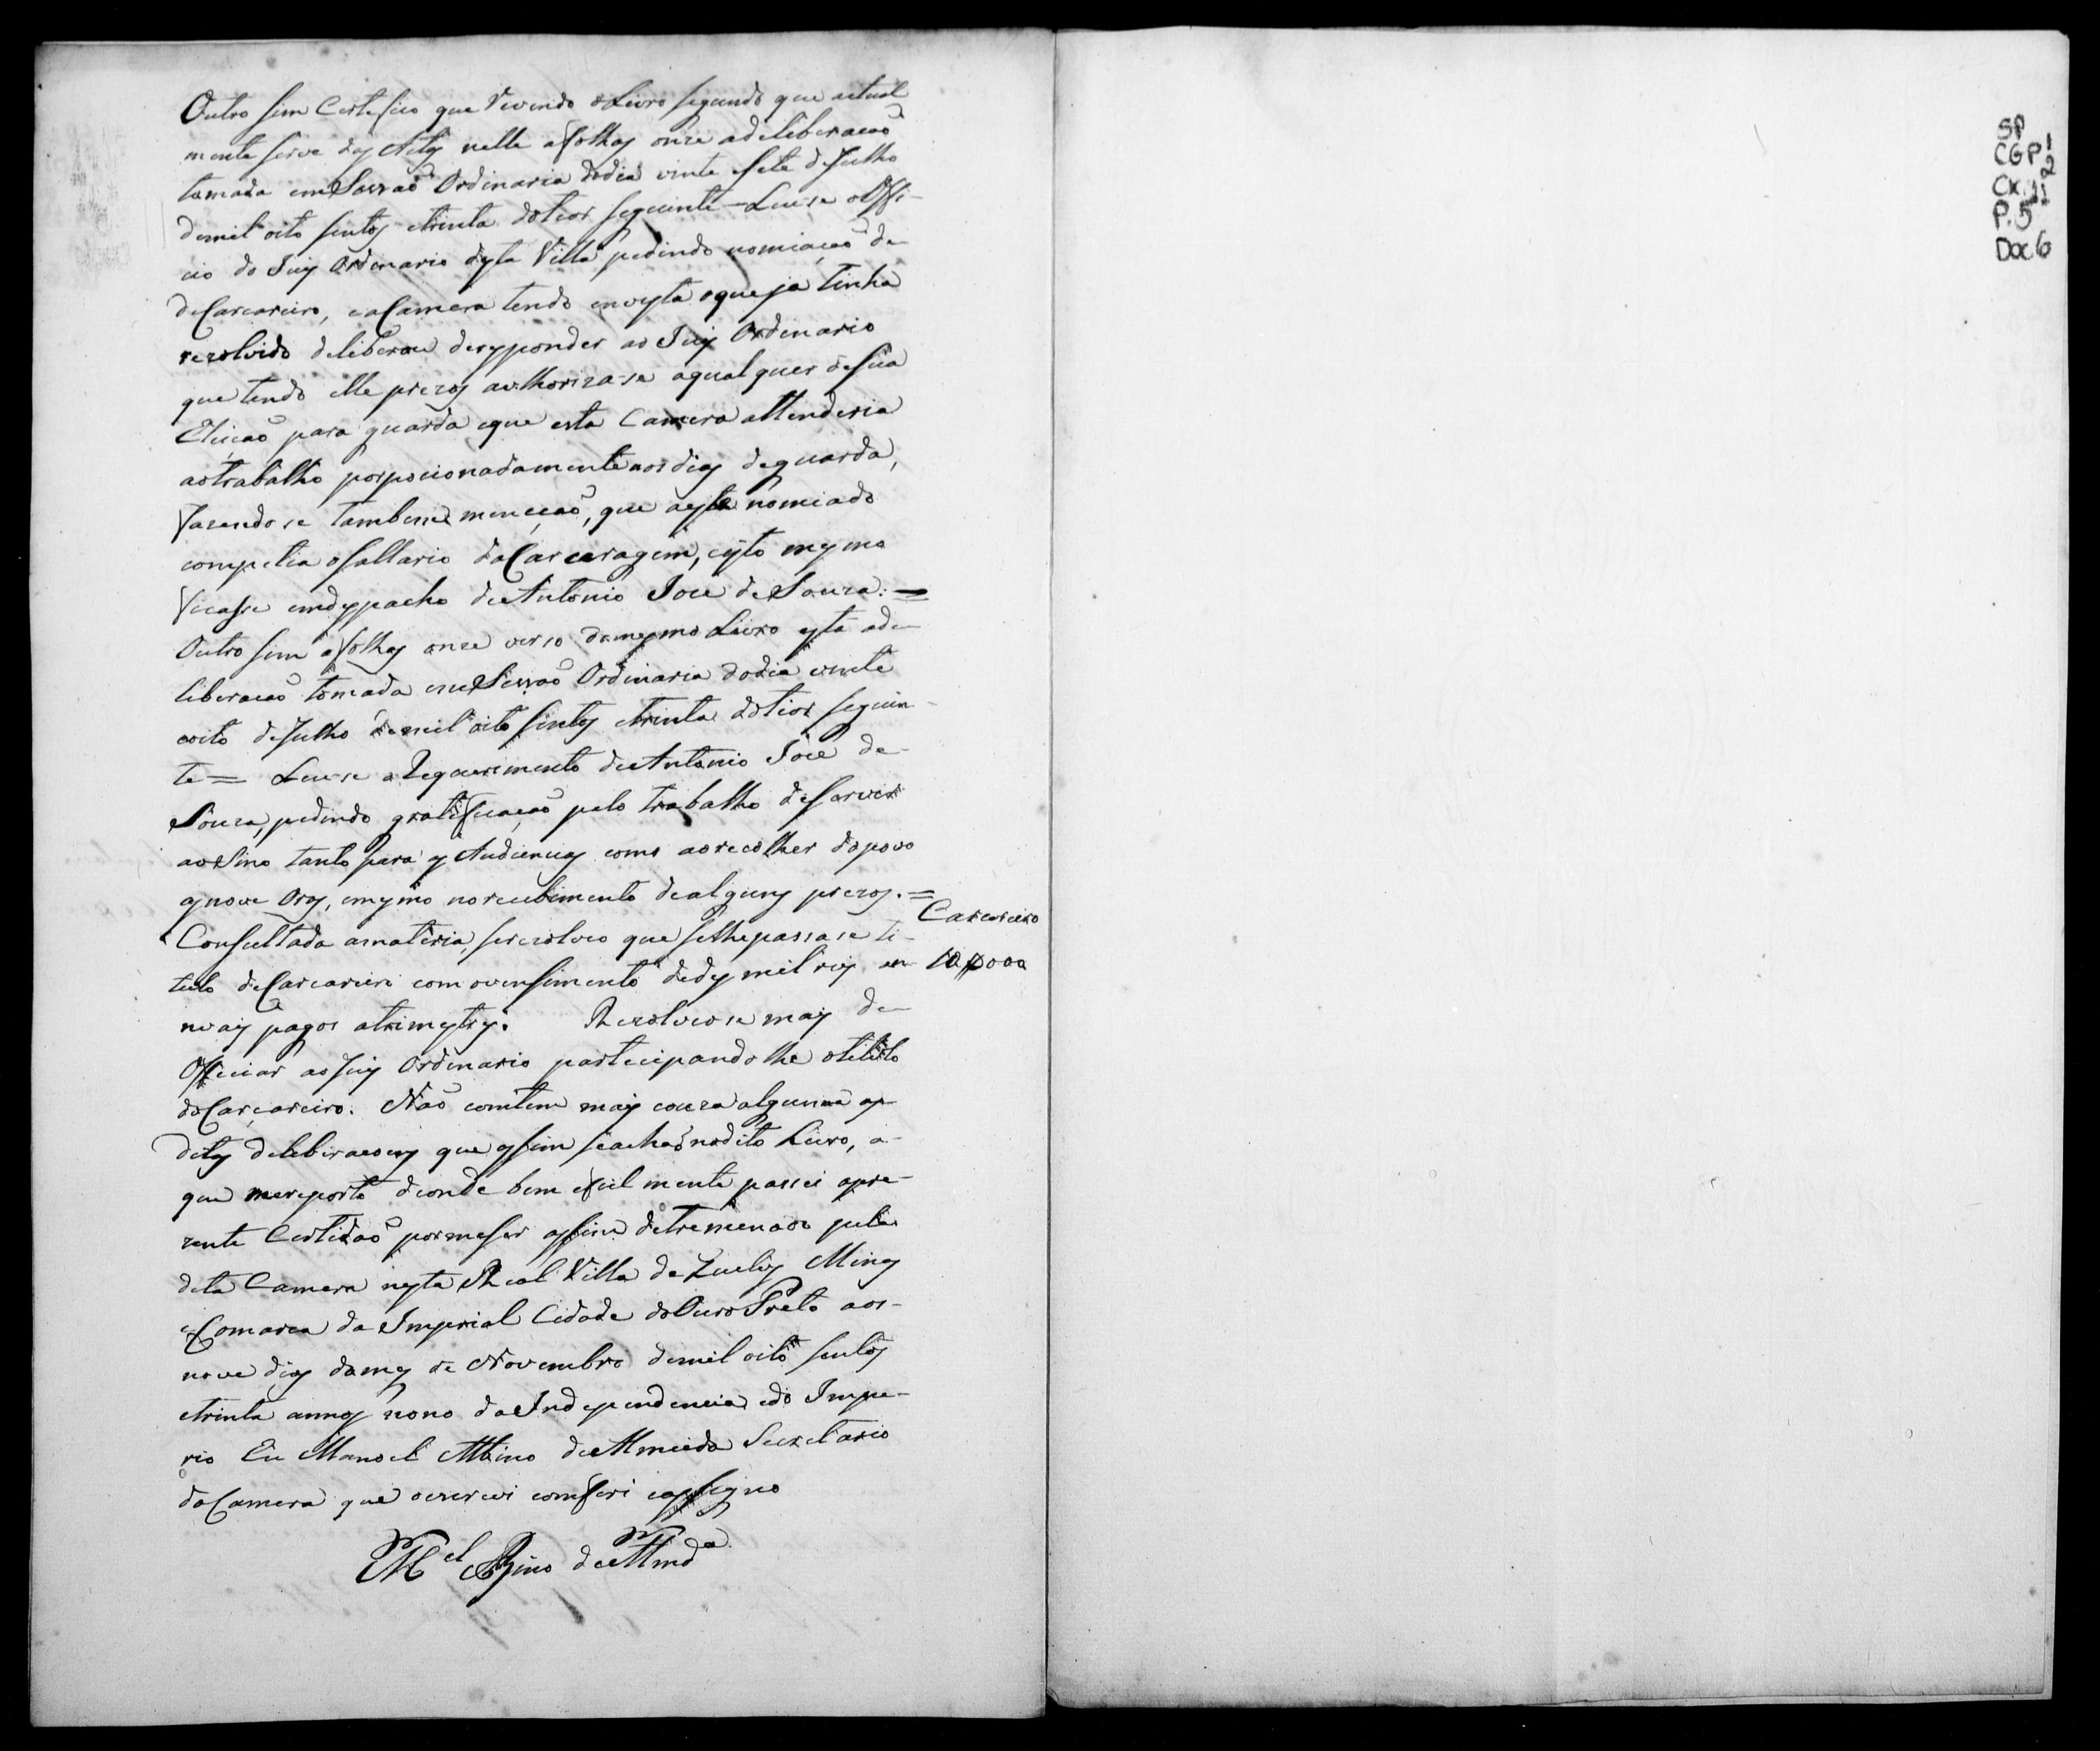 Outro sim Certefico que Vivendo o Livro segundo que actual
mente serve das Actas nelle a folhas onze a deliberacaõ
tomada em Sessaõ Ordinaria do dia vinte sete de Julho
de mil oito sentos e trinta do teor seguinte = Leu se o Offi-
cio do Juis Ordinario desta Villa pedindo nomiaçaõ de
de Carcareiro, e a Camera tendo em vista o que ja tinha
rezolvido deliberou de responder ao Juis Ordinario
que tendo elle prezos authoriza-se a qual quer de sua
Eleiçaõ para guarda e que esta Camera attenderia
ao trabalho porpocionadamente aos dias de guarda,
fazendo se tambem mencçaõ, que a este nomiado
competia o sallario da Carceragem, e isto mesmo
ficasse em despacho de Antonio Joze de Souza. =
Outro sim a folhas onze verso do mesmo Livro esta a de
liberacaõ tomada em Sessaõ Ordinaria do dia vinte
oito de Julho de mil oito sentos e trinta do teor seguin
te = Leu-se o Requerimento de Antonio Joze de
Souza, pedindo gratificaçaõ pelo trabalho de
ao Sino tanto para as Audiencias como ao recolher do povo
as nove Oras, e mesmo no recebimento de alguns prezos. =
Consultada a materia, se rezolveo que se lhe passa se ti-
tulo de Carcareiro com o vensimento de des mil reis an
nuais pagos a trimestres. Rezolveo se mais de
Officiar ao Juis Ordinario participando lhe o titulo
do Carcareiro. Naõ contem mais couza alguma as
ditas deliberacoens que assim se achaõ no dito Livro, a
que me reporto de onde bem e fiel mente passei a pre-
zente Certidaõ por me ser assim detremenado pela
dita Camera nesta Real Villa de Queluz Minas
e Comarca da Imperial Cidade do Ouro Preto aos
nove dias do mes de Novembro de mil oito sentos
e trinta annos nono da Independencia e do Impe-
rio Eu Manoel Albino de Almeida Secretario
da Camera que o escrevi comferi e assigno
M.el Albino de Almd.a
Carcareiro
10$000
SP
CGP!
2
Cx. 11
P. 5
Doc 6